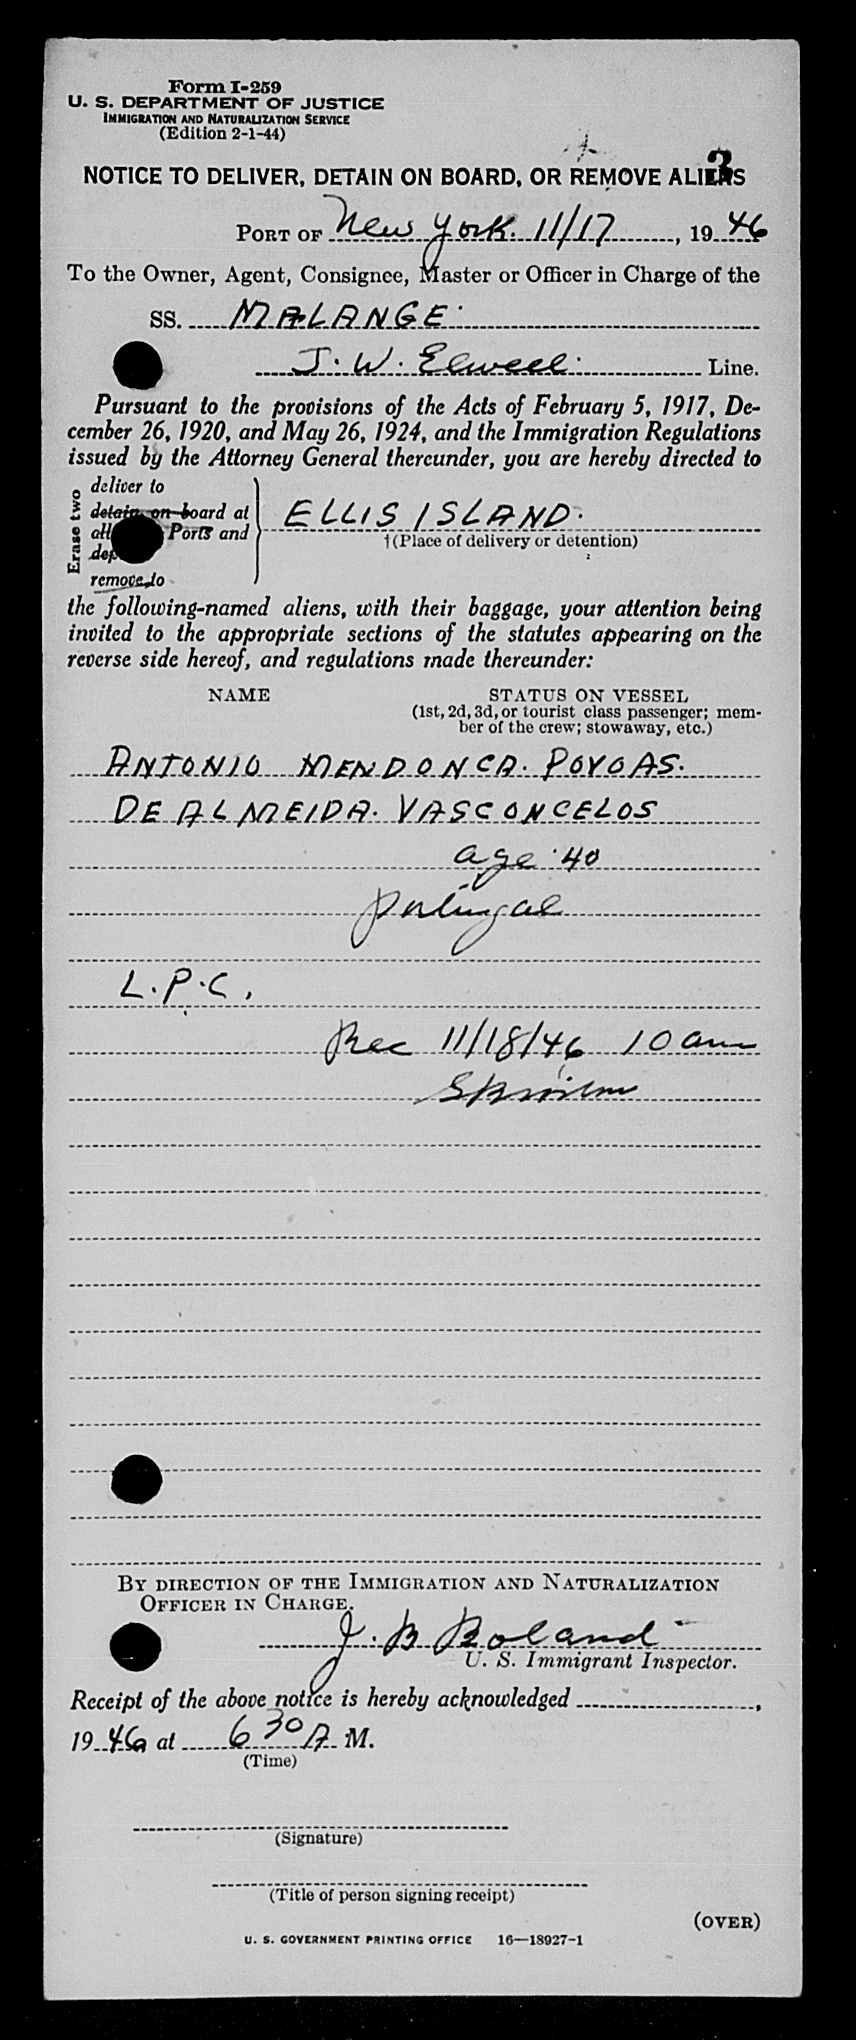 Form I-259
U. S. DEPARTMENT OF JUSTICE
IMMIGRATION AND NATURALIZATION SERVICE
(Edition 2-1-44)
3
NOTICE TO DELIVER, DETAIN ON BOARD, OR REMOVE ALIENS
PORT OF New York. 11/17, 1946
To the Owner, Agent, Consignee, Master or Officer in Charge of the
SS. MALANGE
J. W. Elwell Line.
Pursuant to the provisions of the Acts of February 5, 1917, De-
cember 26, 1920, and May 26, 1924, and the Immigration Regulations
issued by the Attorney General thereunder, you are hereby directed to
Erase two
deliver to
detain on board at
all Ports and
dep
remove to
ELLIS ISLAND.
†(Place of delivery or detention)
the following-named aliens, with their baggage, your attention being
invited to the appropriate sections of the statutes appearing on the
reverse side hereof, and regulations made thereunder:
NAME STATUS ON VESSEL
(1st, 2d, 3d, or tourist class passenger; mem-
ber of the crew; stowaway, etc.)
ANTONIO MENDONCA. POVOAS.
DE ALMEIDA. VASCONCELOS
age 40
Portugal
L.P.C.
Rec 11/18/46 10 am
BY DIRECTION OF THE IMMIGRATION AND NATURALIZATION
OFFICER IN CHARGE.
J. B Boland
U. S. Immigrant Inspector.
Receipt of the above notice is hereby acknowledged ,
1946 at 6 30 A M.
(Time)
(Signature)
(Title of person signing receipt)
(OVER)
U. S. GOVERNMENT PRINTING OFFICE 16—18927-1